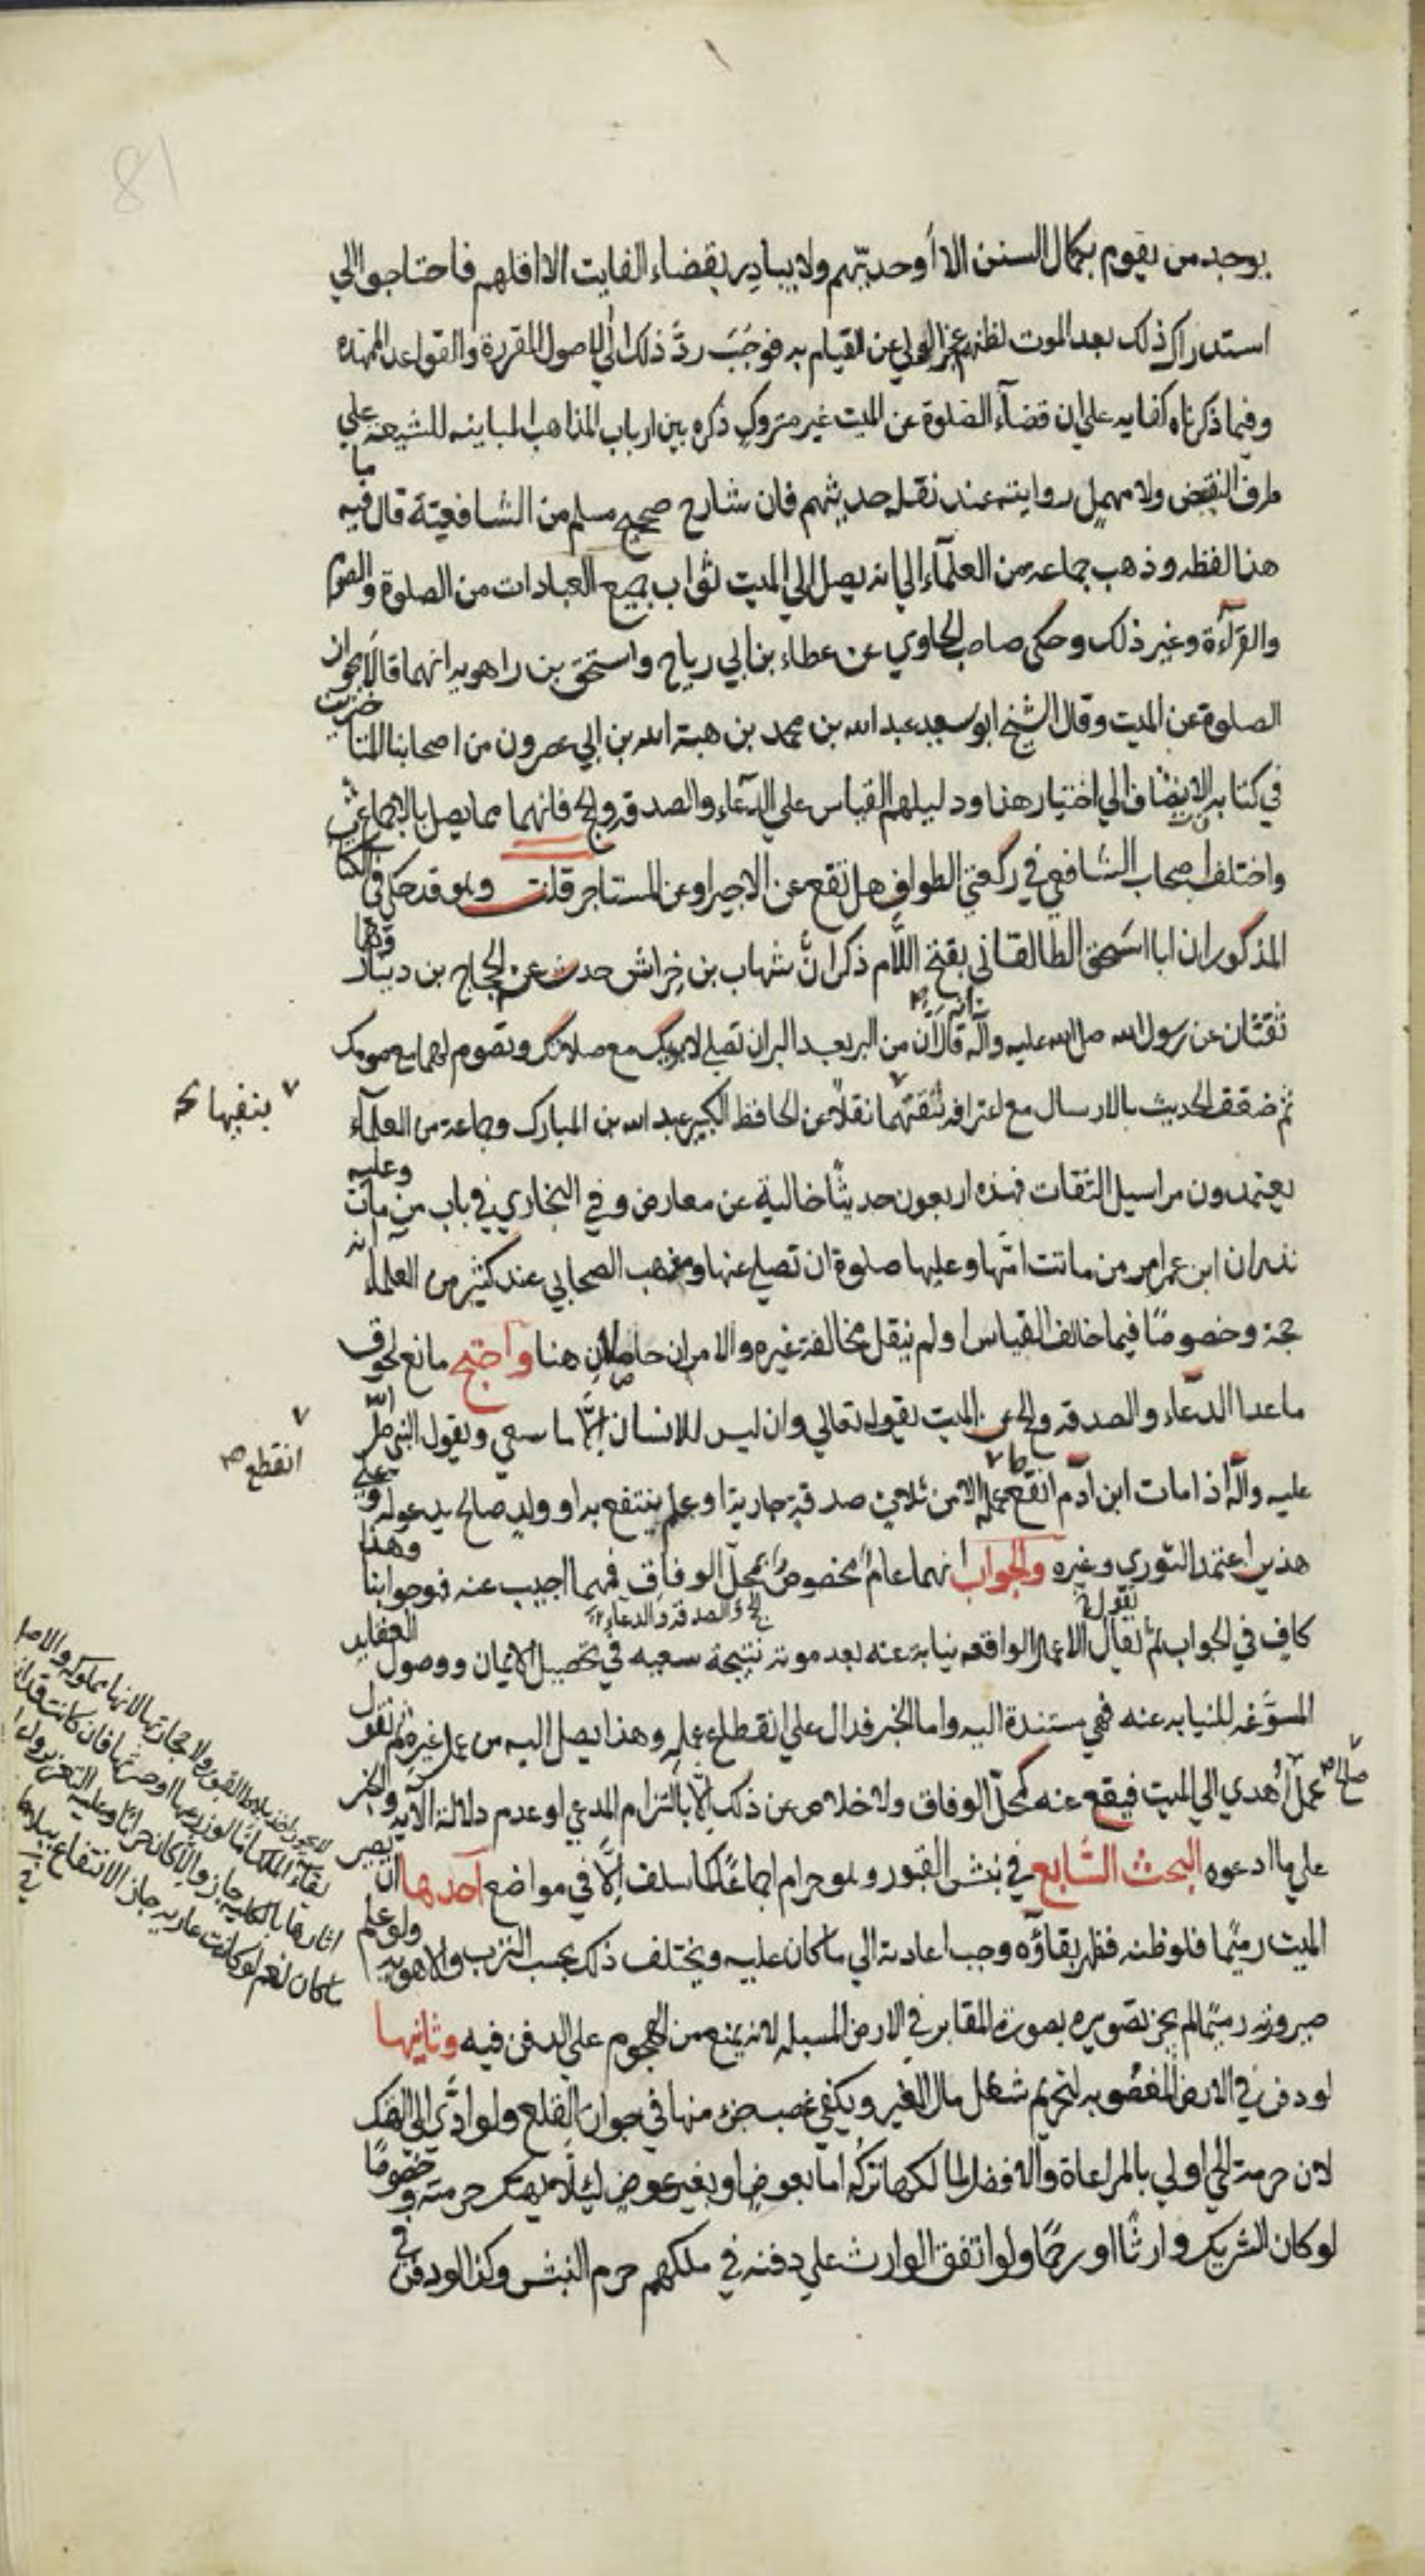 81
يوجد من يقوم بكمال السنن الا أوحديّهم ولا يبادر بقضاء الفايت الا اقلهم فاحتاجوا الي
استدراك ذلك بعد الموت لظنهم عجز الولي عن القيام به فوجَبَ ردَّ ذلك الي الاصول المقررة والقواعد الممهده
وفيما ذكرناه كفايه علي ان قضآء الصلوة عن الميت غير متروكٍ ذكره بين ارباب المذاهب المباينه للشيعة علي
طرف النقيض ولا مهملٍ روايته عند نقلة حديثهم فان شارح صحيح مسلم من الشافعيّة قال فيه ما
هذا لفظه وذهب جماعه من العلمآء الي انه يصل الي الميت ثواب جميع العبادات من الصلوة والصوم
والقرآءة وغير ذلك وحكى صاحب الحاوي عن عطاء بن ابي رباح واسحق بن راهويه انهما قالا بجواز
الصلوة عن الميت وقال الشيخ ابو سعيد عبد الله بن محمد بن هبة الله بن ابي عصرون من اصحابنا المتاخرين
في كتابه الي اختيار هذا ودليلهم القياس علي الدعاء والصدقه والحج فانهما مما يصل بالاجماع
واختلف اصحاب الشافعي في ركعتي الطواف هل تقع عن الاجير او عن المستاجر قلت وهو قد حكى في الكتاب
المذكور ان ابا اسحق الطالقاني بفتح اللام ذكر انَّ شهاب بن خِراش حدث عن الحجاج بن دينار وهما
ثقتان عن رسول الله صلى الله عليه وآله انه قال ان من البر بعد البر ان تصلي لابويك مع صلاتك وتصوم لهما مع صومك
ثم ضعف الحديث بالارسال مع اعترافه بثقتهما نقلا عن الحافظ الكبير عبد الله بن المبارك وجماعة من العلمآء
ينفيها
يعتمدون مراسيل الثقات فهذه اربعون حديثًا خالية عن معارض وفي البخاري في باب من مات وعليه
نذر ان ابن عمر امر من ماتت امّها وعليها صلوة ان تصلي عنها ومذهب الصحابي عند كثير من العلماء انه
حجة وخصوصًا فيما خالف القياس ولم ينقل مخالفة غيره والامران حاصلان هنا واحتج مانع لحوق
ما عدا الدعاء والصدقه والحج عن الميت بقوله تعالي وان ليس للانسان إلّا ما سعي وبقول النبي صلى الله
عليه وآله اذا مات ابن آدم انقطع عمله الا من ثلاث صدقة جارية او علم ينتفع به او ولدٍ صالح يدعو له وعلي
انقطع
هذين اعتمد النوري وغيره والجواب انهما عام مخصوصٌ بمحل الوفاق فمهما اجيب عنه فهو جوابنا وهذا
كافٍ في الجواب ثم نقول الاعمال الواقعه نيابة عنه بعد موته نتيجة سعيه في تحصيل الايمان ووصول العقايد
كالحج والصدقة والدعآء
المسوّغه للنيابه عنه فهي مستندة اليه واما الخبر فدال علي انقطاع عمله وهذا يصل اليه من عمل غيره ثم نقول
عملٌ صالح أُهدي الي الميت فيقع عنه كمحل الوفاق ولا خلاص عن ذلك إلّا بالتزام المدعي او عدم دلالة الآيه والخبر
علي ما ادعوه البحث السّابع في نبش القبور وهو حرام اجماعًا كما سلف إلّا في مواضع احدها ان يصير
الميت رميمًا فلو ظنه فظهر بقاؤه وجب اعادته الي ما كان عليه ويختلف ذلك بحسب الترب والاهويه ولو علم
صيرورته رميمًا لم يجز تصويره بصورة المقابر في الارض المسبله لانه يمنع من الهجوم علي الدفن فيه وثانيها
لو دفن في الارض المغصوبه لتحريم شغل مال الغير ويكفي غصب جزء منها في جواز القلع ولو ادّي الي الهتك
لان حرمة الحي اولي بالمراعاة والافضل لمالكها تركه اما بعوضٍ او بغير عوضٍ ليلا يهتك حرمته وخصوصًا
لو كان الشريك وارثًا او رحمًا ولو اتفق الوارث علي دفنه في ملكهم حرم النبش وكذا لو دفن في